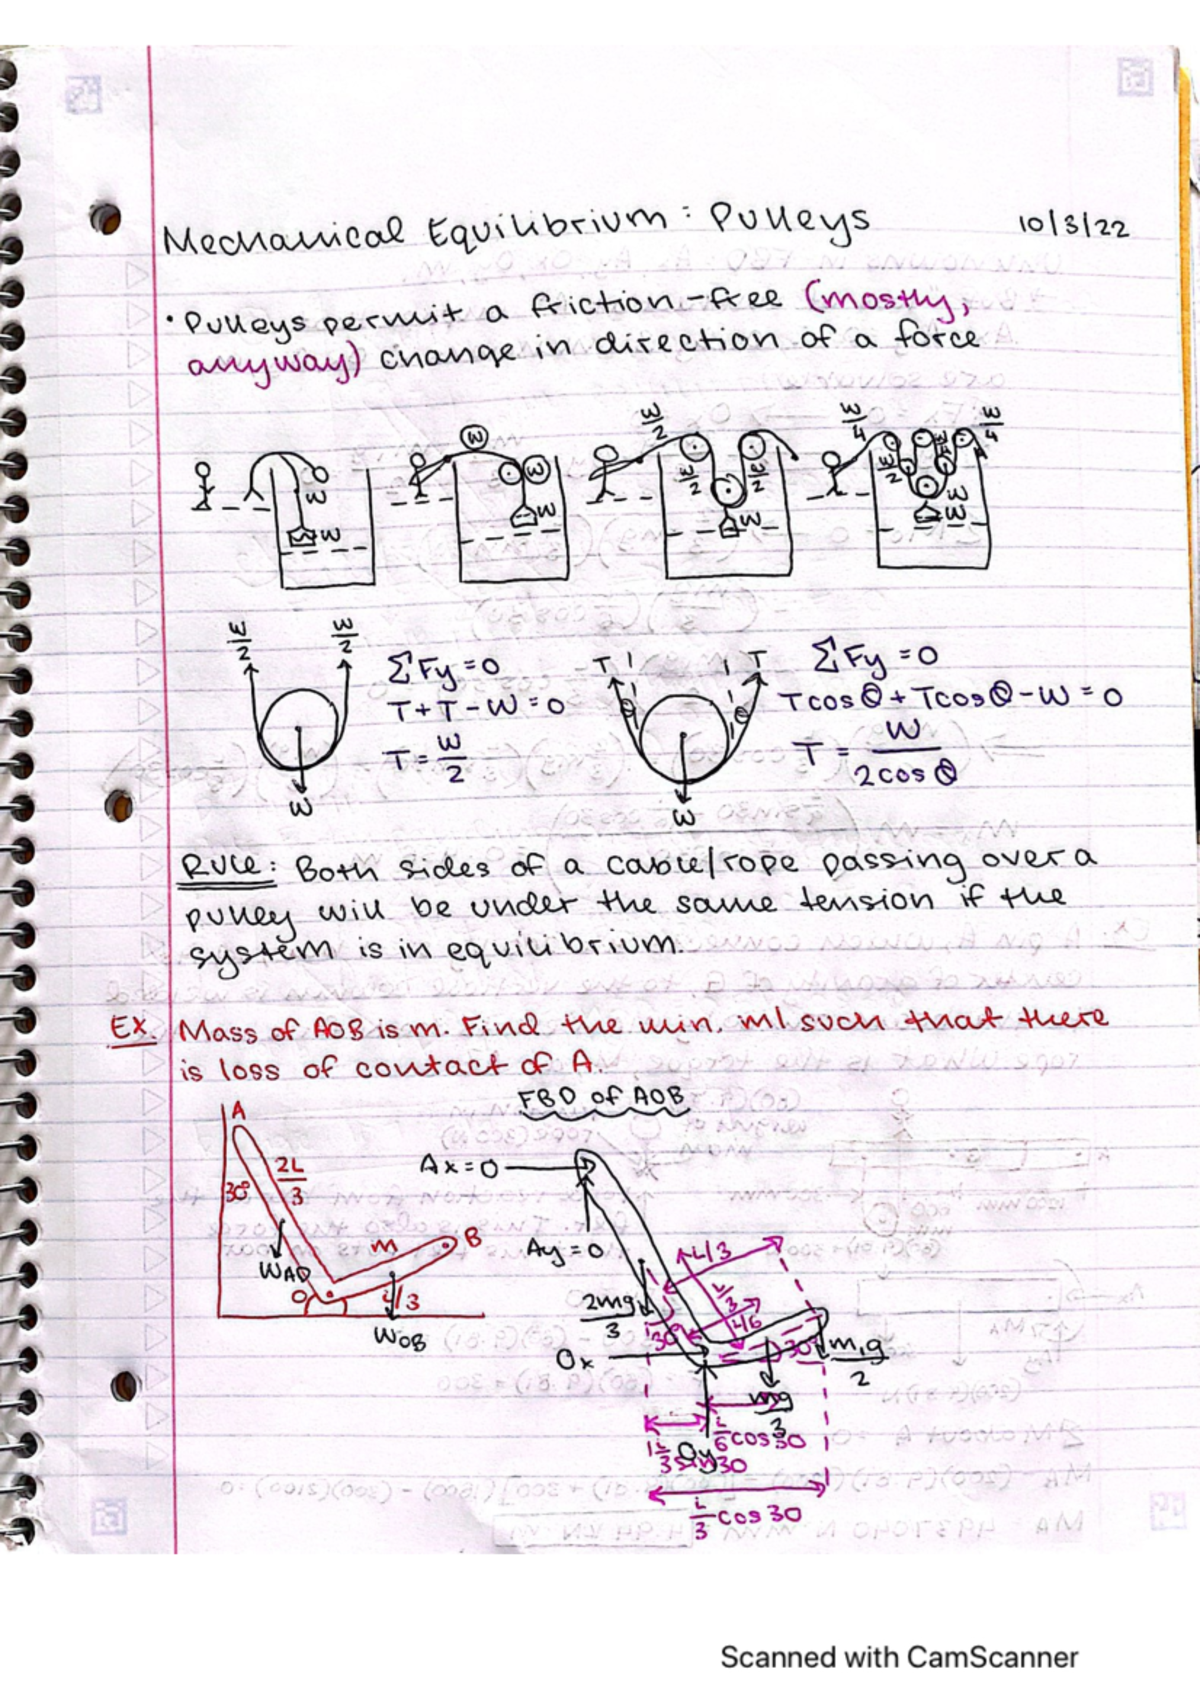 Mechanical Equilibrium: Pulleys 10/3/22
• Pulleys permit a friction-free (mostly,
anyway) change in direction of a force
W
W
W
W
W
W/2
W/2
W/2
W
W/4
W/4
W/2
W
W
W/2 W/2
ΣFy = 0
T+T-W=0
T = W/2
W
T T
θ θ
ΣFy = 0
Tcosθ + Tcosθ - W = 0
T = W/2cosθ
W
Rule: Both sides of a cable/rope passing over a
pulley will be under the same tension if the
system is in equilibrium.
Ex. Mass of AOB is m. Find the min. m1 such that there
is loss of contact of A.
FBD of AOB
A
2L/3
30°
m
B
WAO
O
L/3
WOB
Ax=0
Ay=0
L/3
L/3
L/6
2mg/3
30°
30°
Ox
m1g/2
mg/3
L/6 cos30
Oy
L/3 sin30
L/3 cos30
Scanned with CamScanner